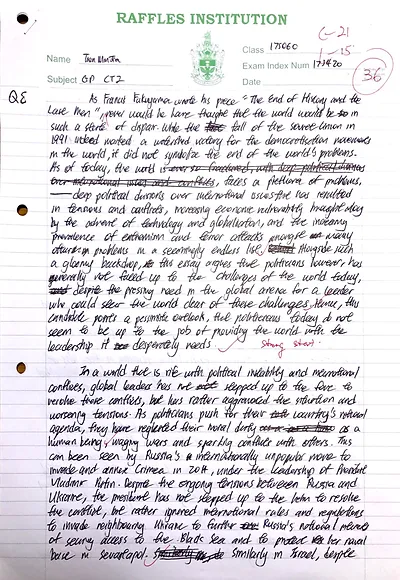 RAFFLES INSTITUTION
C-21
1-15
36
Name
Class 17S06O
Exam Index Num 171420
Subject GP CT2
Date
Q8
As Francis Fukuyama wrote his piece "The End of History and the
Last Man", never would he have thought that the world would be in
such a state of dispair. While the fall of the Soviet Union in
1991 indeed marked a watershed victory for the democratisation movements
in the world, it did not symbolize the end of the world's problems.
As of today, the world is faces a plethora of problems,
deep political divisions over international issues that has resulted
in tensions and conflicts, increasing economic vulnerability brought by
by the advent of technology and globalisation, and the increasing
prevalence of extremism and terror attacks amongst many
other problems in a seemingly endless list. Alongside such
a gloomy backdrop, this essay argues that politicians however, has
generally not faced up to the challenges of the world today,
despite the pressing need in the global arena for a leader
who could steer the world clear of these challenges. Hence, this
candidate paints a pessimistic outlook, that politicians today do not
seem to be up to the job of providing the world with the
leadership it desperately needs.
Strong start.
In a world that is rife with political instability and international
conflicts, global leaders has not stepped up to the fore to
resolve these conflicts, but has rather aggravated the situation and
worsening tensions. As politicians push for their country's national
agenda, they have neglected their moral duty as a
human being, waging wars and sparking conflicts with others. This
can been seen by Russia's internationally unpopular move to
invade and annex Crimea in 2014, under the leadership of President
Vladimir Putin. Despite the ongoing tensions between Russia and
Ukraine, the president has not stepped up to the helm to resolve
the conflict, but rather ignored international rules and regulations
to invade neighbouring Ukraine to further Russia's national interests
of securing access to the Black Sea and to protect her naval
base in Sevastopol. Similarly in Israel, despite